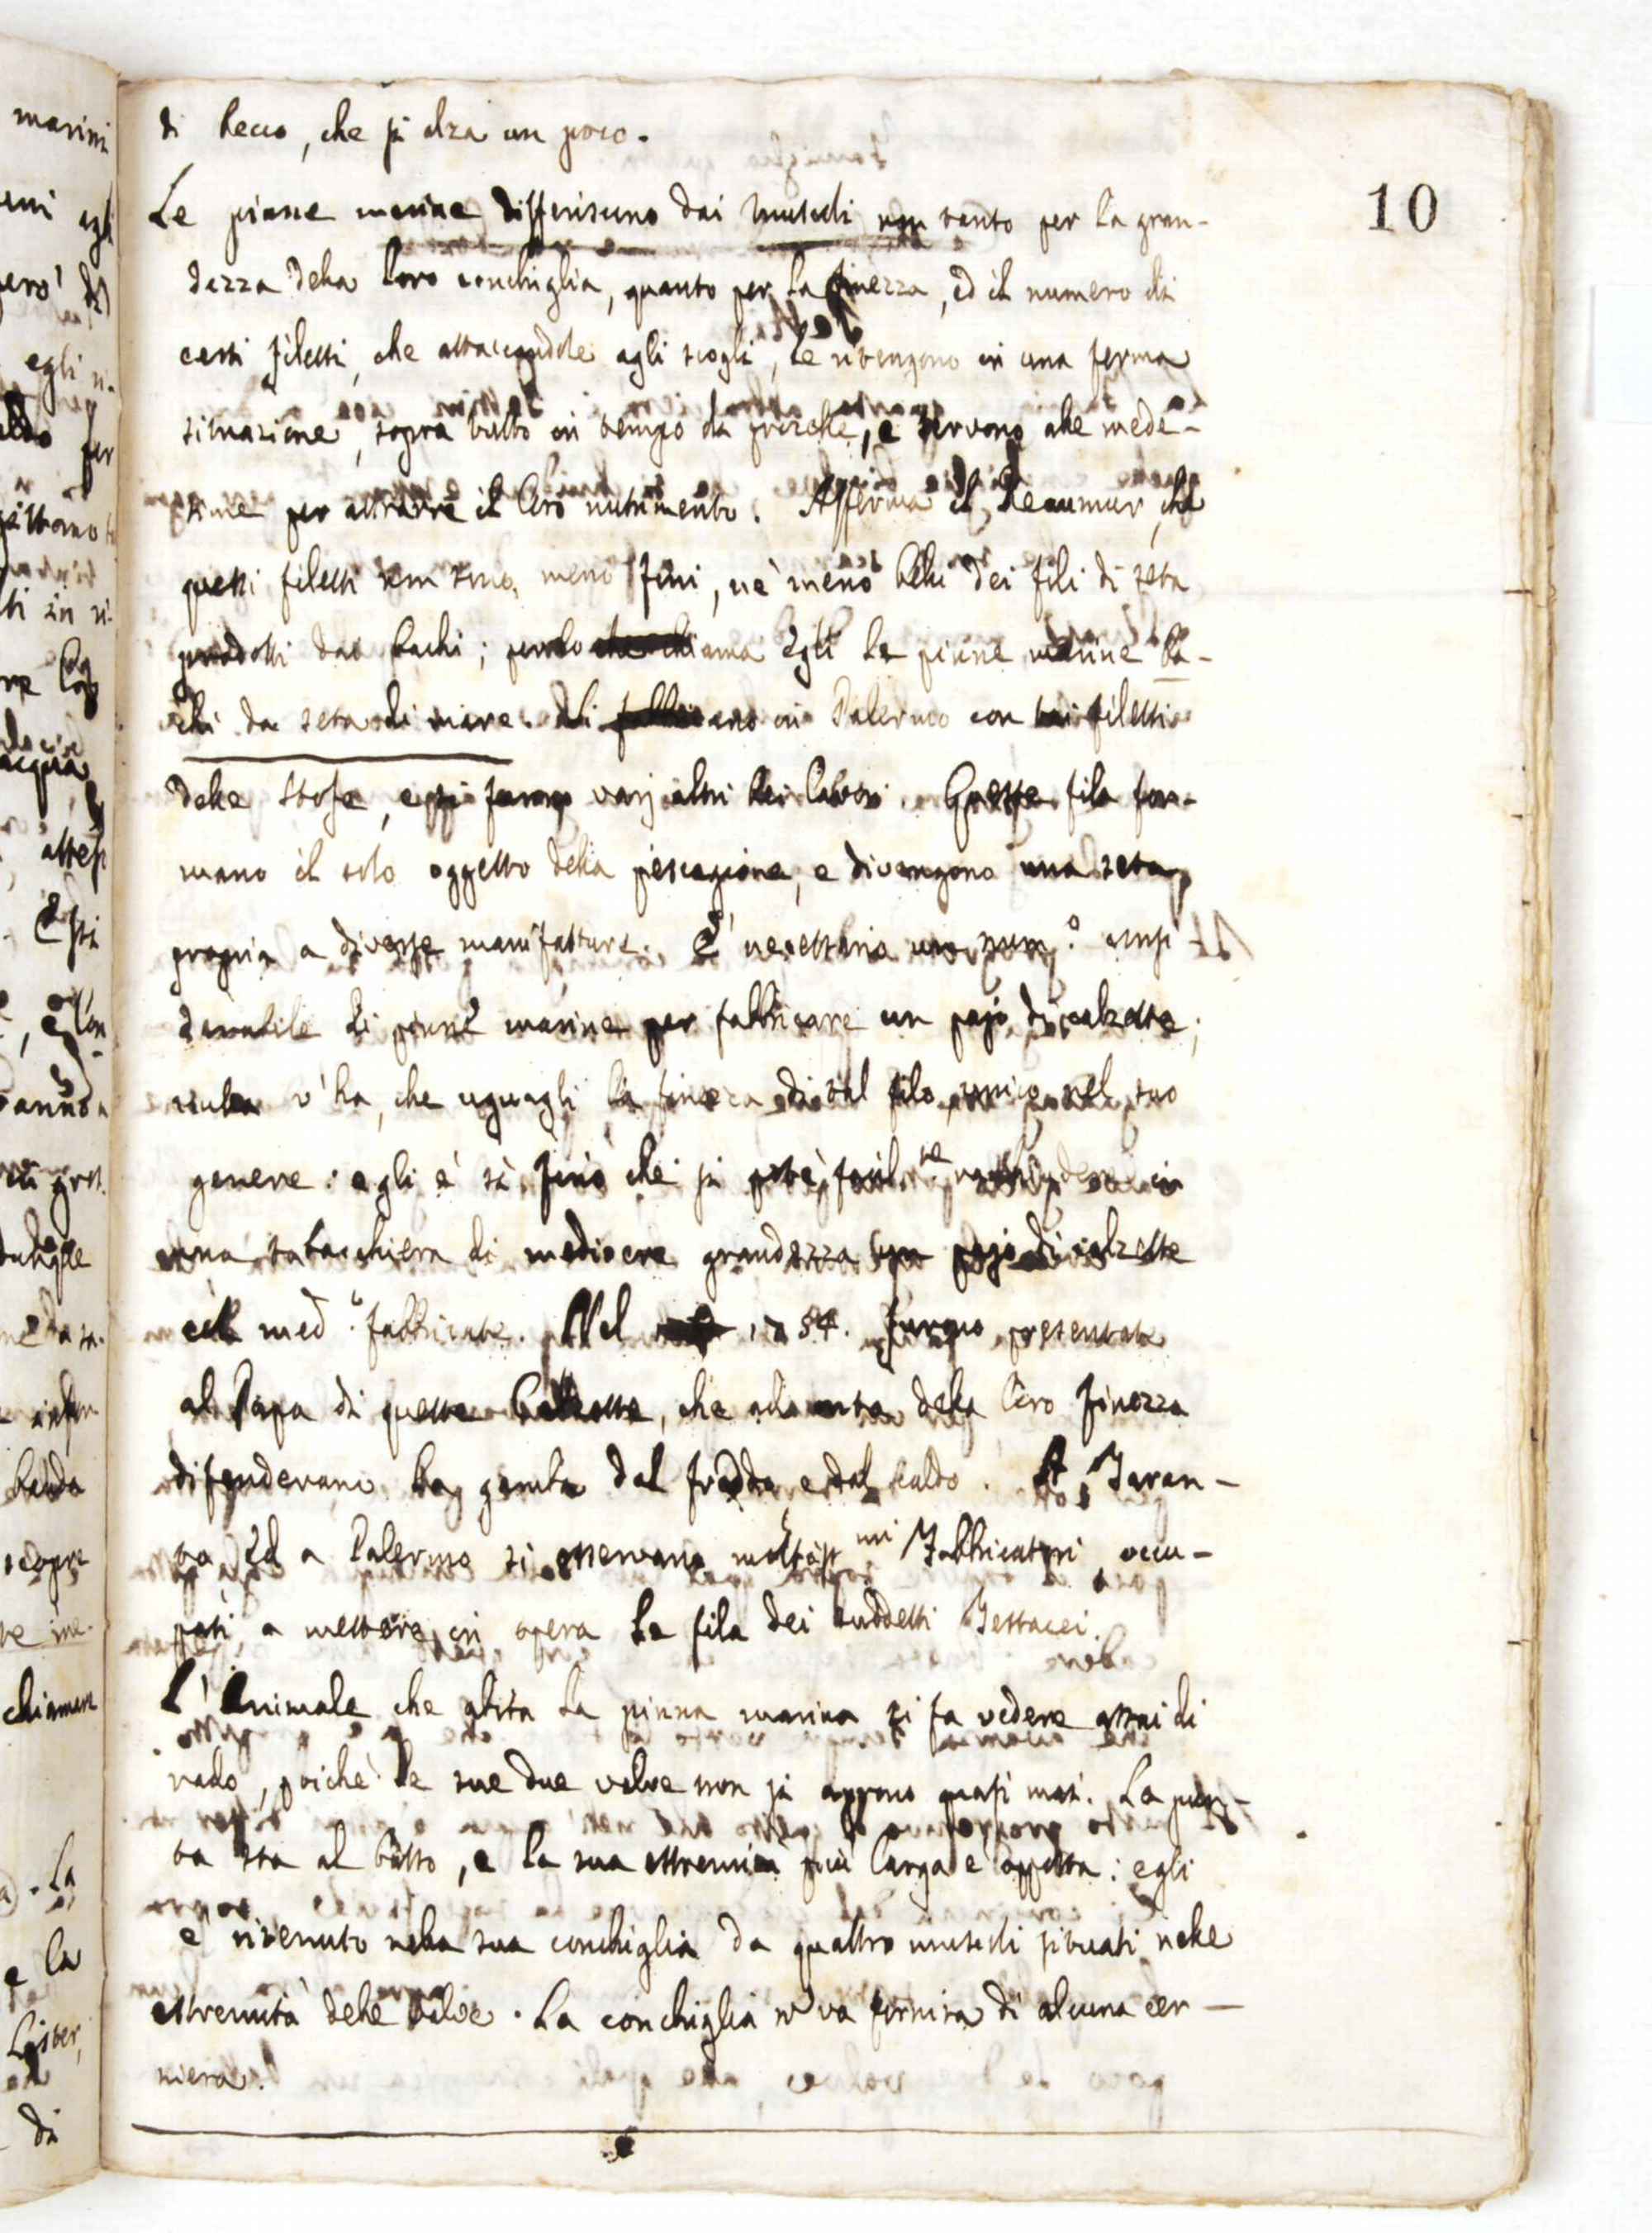 10
di becco, che si alza un poco.
Le pinne marine differiscono dai muscoli non tanto per la gran-
dezza della loro conchiglia, quanto per la finezza, ed il numero di
certi filetti, che attaccandole agli scogli, le ritengono in una ferma
situazione, sopra tutto in tempo di procelle, e servono alle mede-
sime per attrarre il loro nutrimento. Afferma il Reaumur, che
questi filetti non sono meno fini, nè meno belli dei fili di seta
prodotti dai bachi; perlo chiama egli le pinne marine ba-
chi da seta di mare. Si fabbricano in Palermo con tai filetti
delle stoffe, e si fanno varj altri bei lavori. Queste fila for-
mano il solo oggetto della pescagione, e divengono una seta
propria a diverse manifatture. È necessario un num.o consi
derabile di pinne marine per fabbricare un pajo di calzette;
nulla v'ha, che uguagli la finezza di tal filo unico nel suo
genere: egli è sì fino che si potè facil.te racchiudere in
una tabacchiera di mediocre grandezza un pajo di calzette
col med.o fabbricate. Nel 1754. furono presentate
al Papa di queste Calzette, che ad onta della loro finezza
difendevano la gamba dal freddo, e dal caldo. A Taran-
to ed a Palermo si osservano moltiss.mi Fabbricatori occu-
pati a mettere in opera le fila dei suddetti Testacei.
L'Animale che abita la pinna marina si fa vedere assai di
rado, poichè le sue due valve non si aprono quasi mai. La pun-
ta sta al basso, e la sua estremità più larga è opposta: egli
è ritenuto nella sua conchiglia da quattro muscoli situati nelle
estremità delle valve. La conchiglia n va fornita di alcuna cer-
niera.